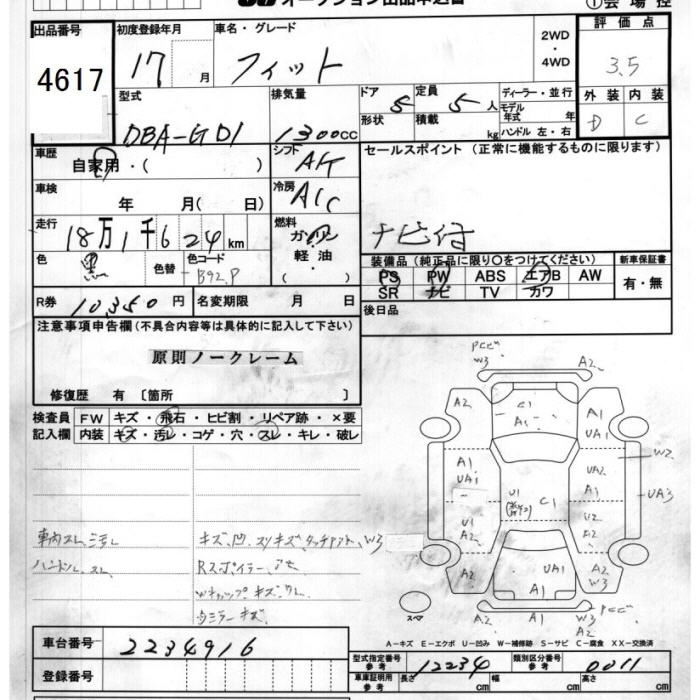 オークション出品申込書
①会場控
出品番号 初度登録年月 車名・グレード 2WD・4WD 評価点
4617 17 月 フィット 3.5
型式 排気量 ドア 5 定員 5 人 ディーラー・並行 外装 内装
DBA-GD1 1300cc 形状 積載 kg モデル年式 年 D C
ハンドル 左・右
車歴 シフト セールスポイント (正常に機能するものに限ります)
自家用・( ) A/T
車検 年 月( 日) 冷房 A/C
走行 18万1千624km 燃料 ガソリン ナビ付
軽油 ( )
色 黒 色替 色コード B92.P
装備品(純正品に限り〇をつけてください) 新車保証書
PS PW ABS エアB AW 有・無
SR ナビ TV カワ
R券 10,350 円 名変期限 月 日 後日品
注意事項申告欄(不具合内容等は具体的に記入して下さい)
原則ノークレーム
修復歴 有 〔箇所 〕
検査員 FW キズ・飛石・ヒビ割・リペア跡・×要
記入欄 内装 キズ・汚レ・コゲ・穴・スレ・キレ・破レ
PCビ
W3 A2
A2 C1 A1
A1 UA1
A1 UA2 W2
UA1 A1 UA3
U1 C1
U1 U2
A2 A2
A2 UA1 A2
A1 W3
A1 W3 PCビ
A2
スペ
車内スレ、汚レ キズ、凹、スリキズ、タッチアト、W3
ハンドルスレ Rスポイラー
Wキャップキズ
ミラーキズ
A-キズ E-エクボ U-凹み W-補修跡 S-サビ C-腐食 XX-交換済
車台番号 2234916
型式指定番号 参考 12234 類別区分番号 参考 0011
登録番号
車庫証明用 参考 長さ cm 幅 cm 高さ cm